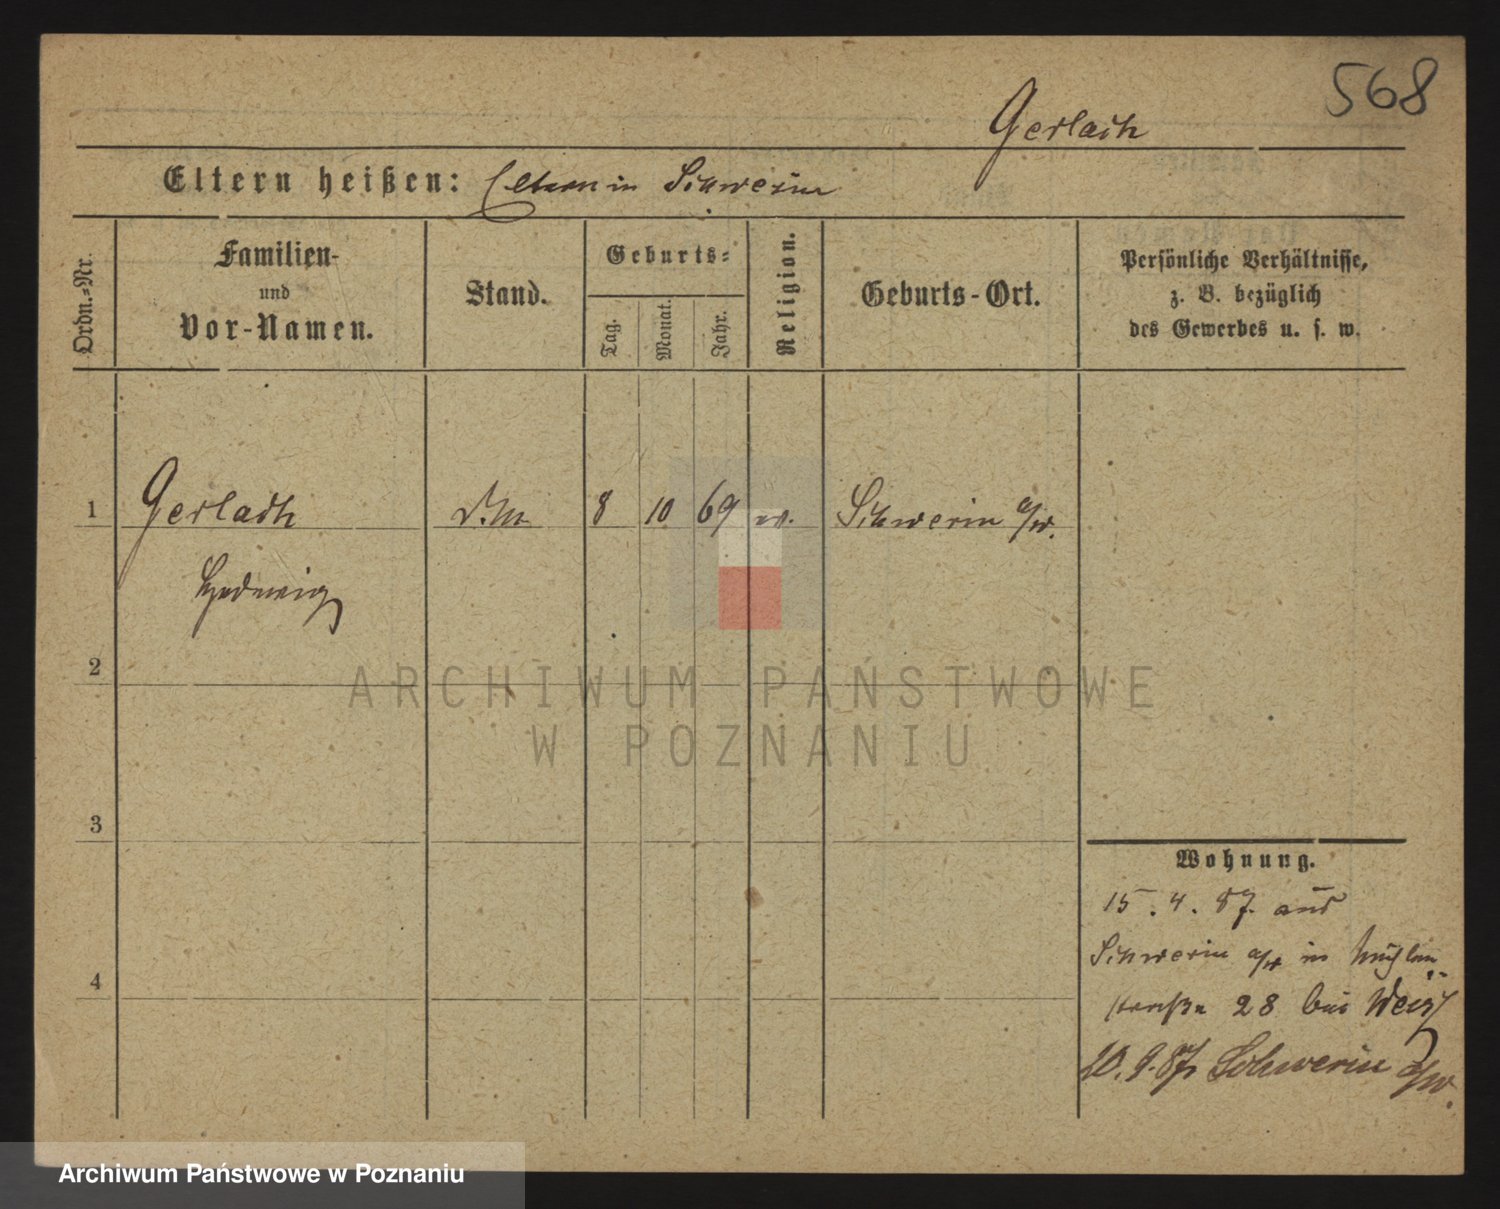 568
Gerlach
Eltern heißen: Eltern in Schwerin
Ordn.-Nr.
Familien-
und
Vor-Namen.
Stand.
Geburts-
Tag.
Monat.
Jahr.
Religion.
Geburts-Ort.
Persönliche Verhältnisse,
z. B. bezüglich
des Gewerbes u. s. w.
1 Gerlach 8 10 69 Schwerin a/w.
Hedwig
2
3
4
Wohnung.
15. 4. 87. aus
Schwerin a/w in Mühlen
straße 28 bei Weiß
20. 9. 87 Schwerin a/w.
ARCHIWUM PAŃSTWOWE
W POZNANIU
Archiwum Państwowe w Poznaniu